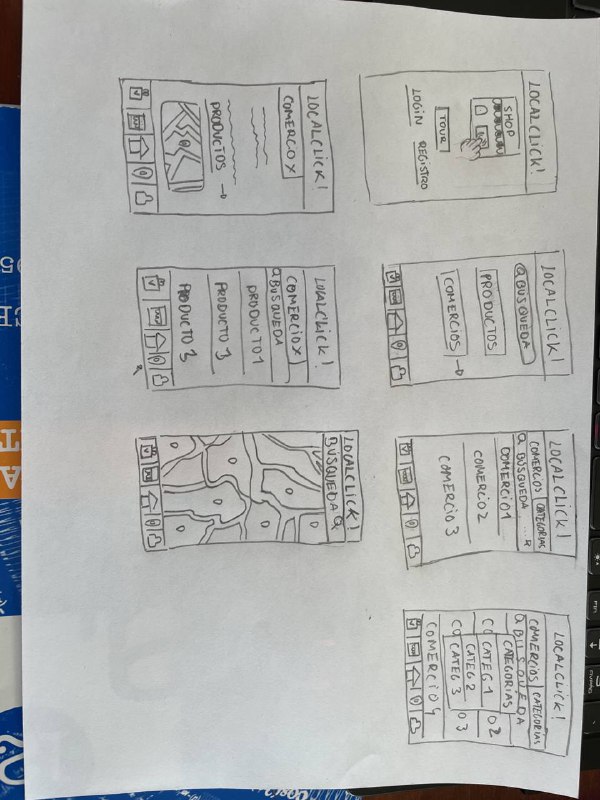 LOCALCLICK!
SHOP
TOUR
LOGIN REGISTRO
LOCALCLICK!
BUSQUEDA
PRODUCTOS
COMERCIOS
LOCALCLICK!
COMERCIOS CATEGORIAS
BÚSQUEDA
COMERCIO1
COMERCIO2
COMERCIO 3
LOCALCLICK!
COMERCIOS CATEGORIAS
BÚSQUEDA
CATEGORÍAS
CO CATEG 1 O 2
CATEG 2
CO CATEG 3 O 3
COMERCIO 4
LOCALCLICK!
COMERCO X
PRODUCTOS
LOCALCLICK!
COMERCIO X
BUSQUEDA
PRODUCTO 1
PRODUCTO 3
PRODUCTO 3
LOCALCLICK!
BÚSQUEDA